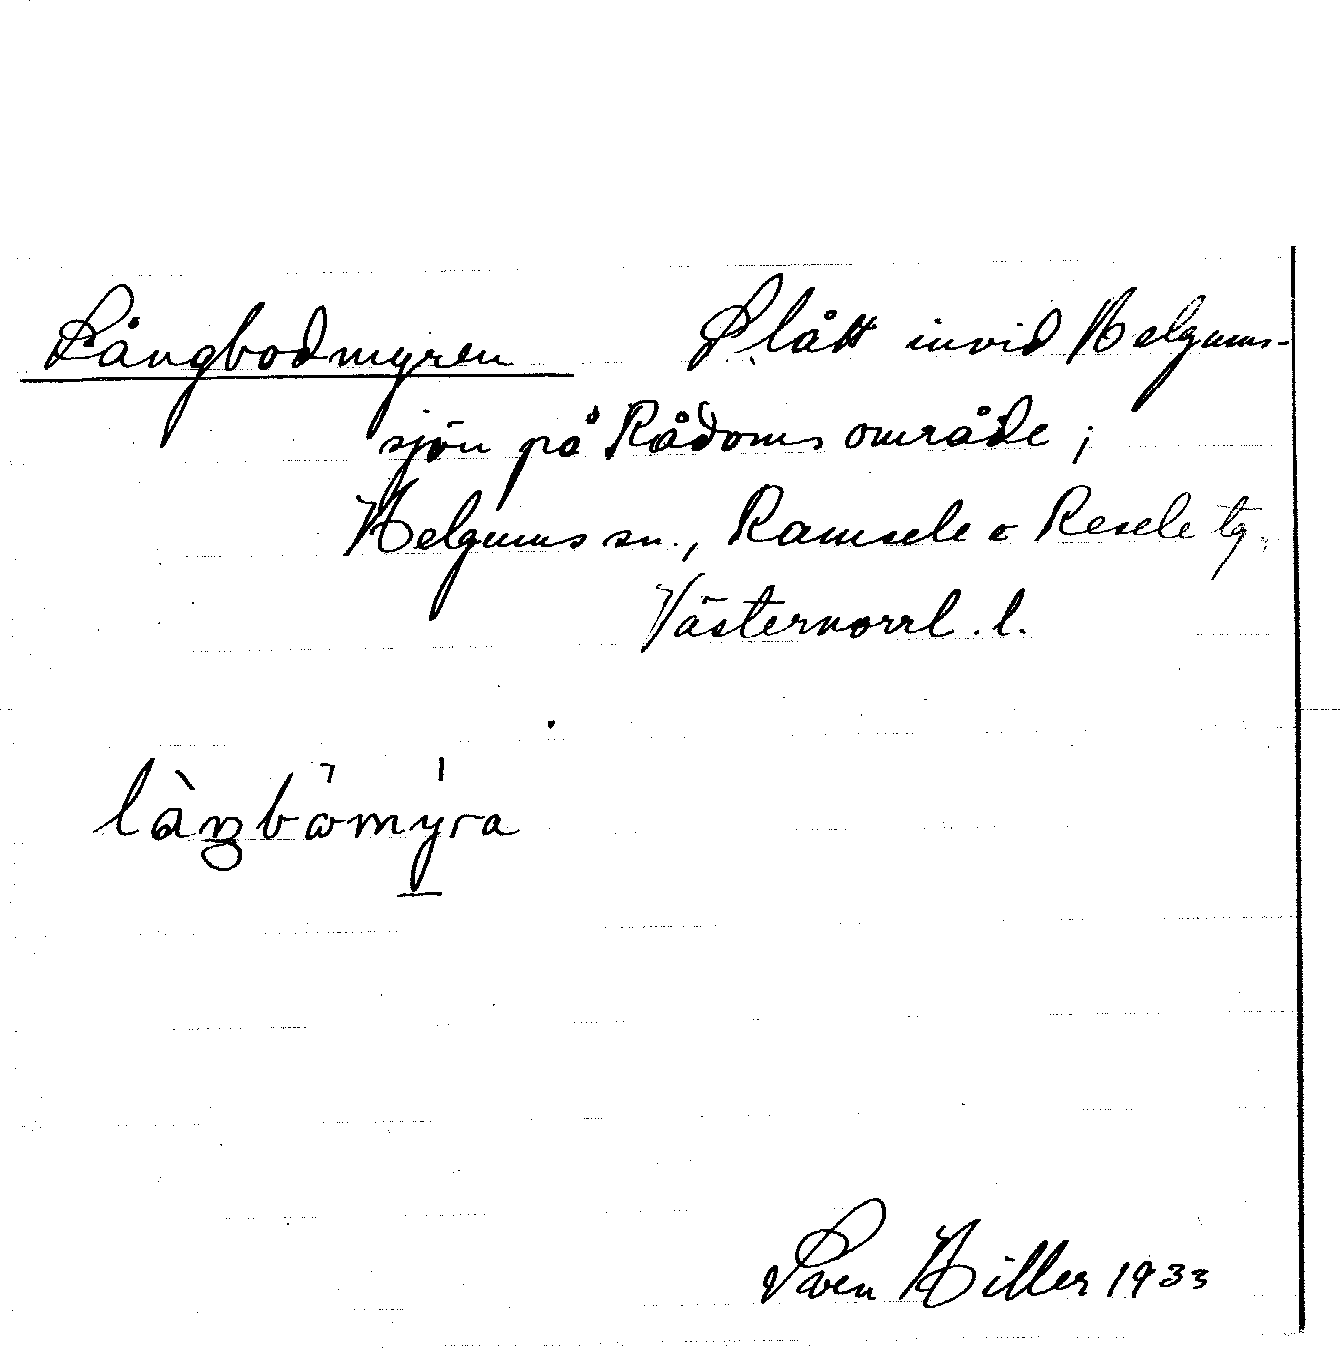 Långbodmyren Slått invid Helgums-
sjön på Rådoms område;
Helgums sn., Ramsele o Resele tg.
Västernorrl. l.
Sven Hiller 1933